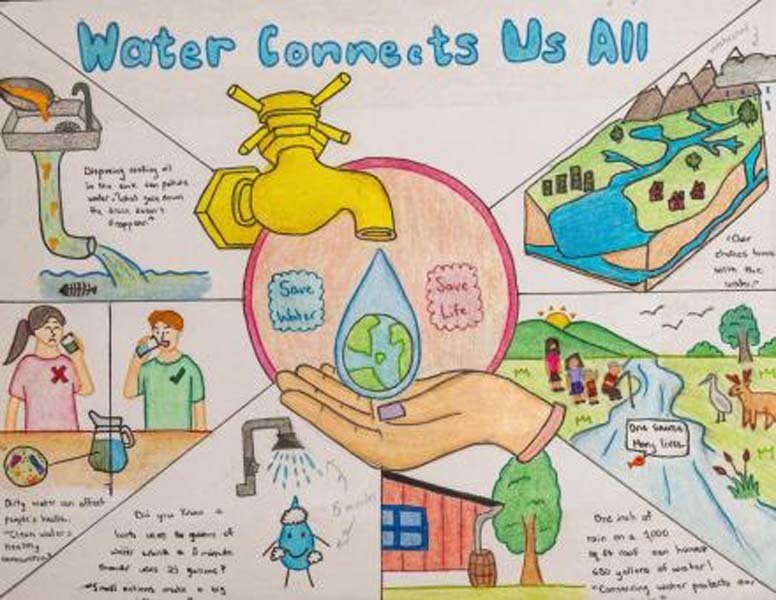 Water Connects Us All
Disposing cooking oil
in the sink can pollute
water. "What goes down
the drain doesn't
disappear."
Save
Water
Save
Life
"Our
choices
with the
water."
One Source
Many lives.
Dirty water can affect
people's health.
"Clean water =
healthy
Did you know a
bath uses
gallons of
water while a 5 minute
shower uses 25 gallons?
"Small actions make a big
5 minutes
One inch of
rain on a 1000
sq ft roof can harvest
600 gallons of water!
"Conserving water protects our